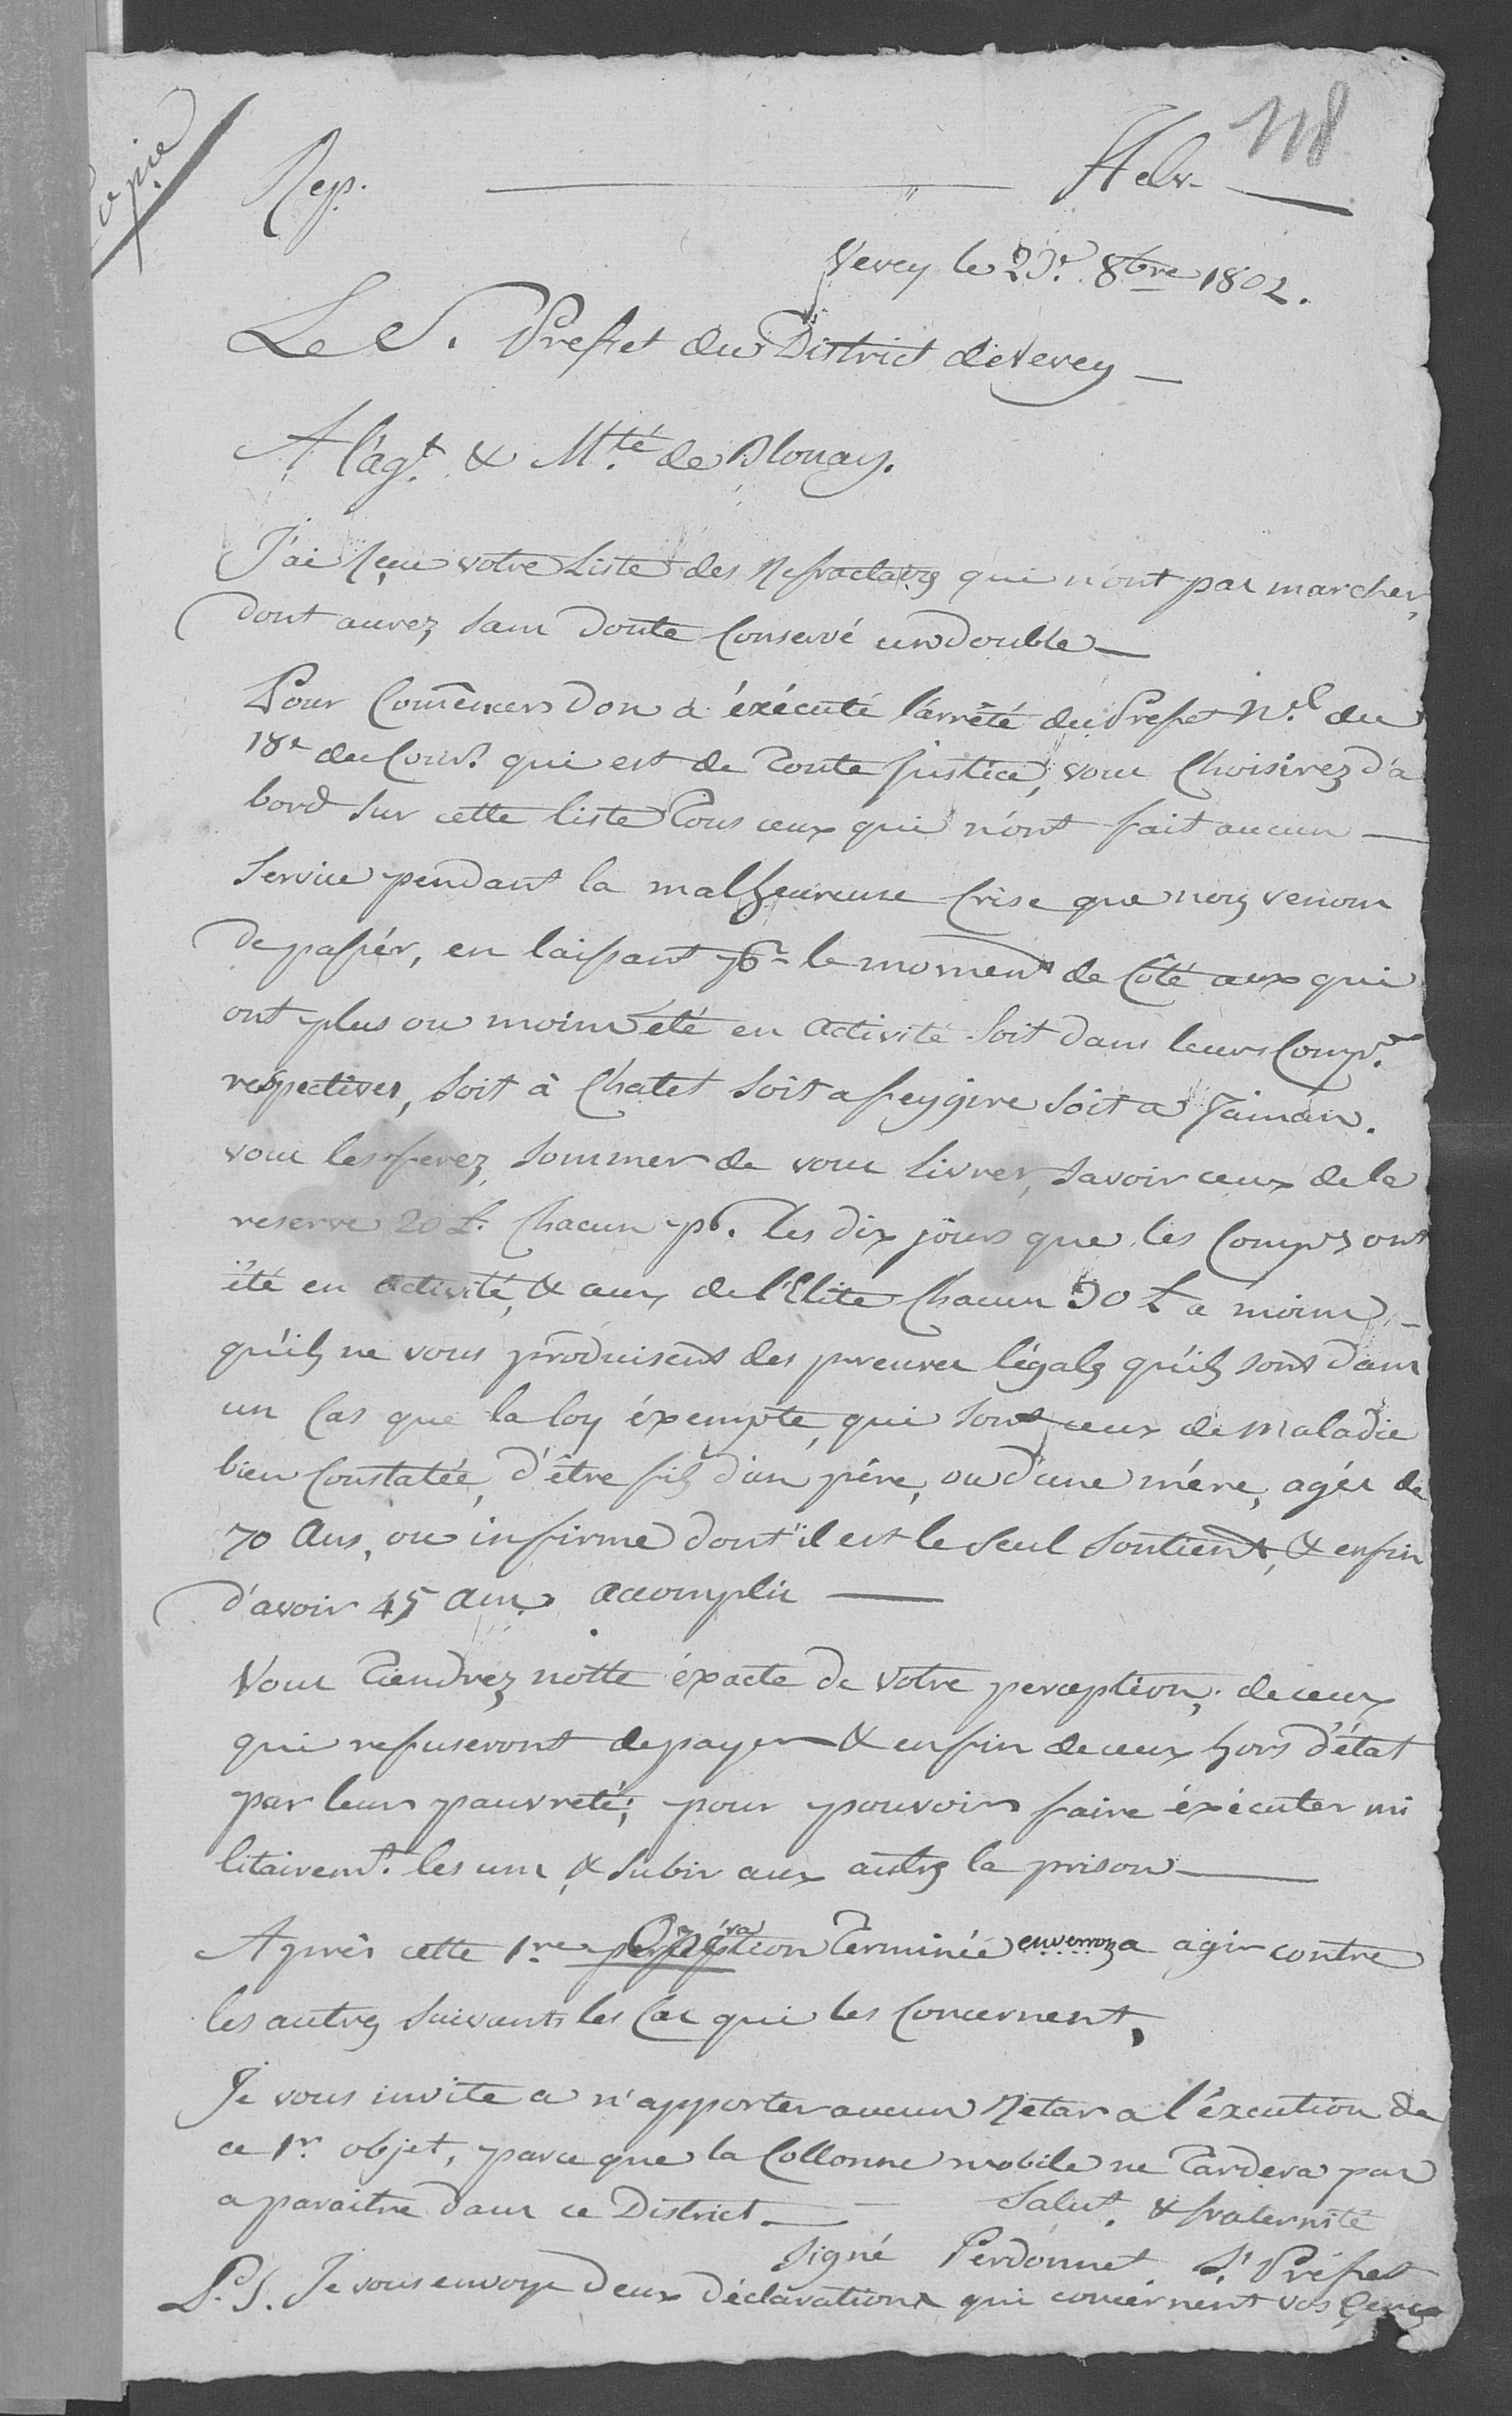 Copie
118
Rep. — " — Helv. —
Vevey le 23e. 8bre 1802.
Le S. Prefet du District de Vevey —
A l'agt. & M.té de Blonay.
J'ai reçu votre Liste des Refractaires qui n'ont pas marcher,
dont aurez sans doute Conservé un double —
Pour Comencer don a éxécuté l'arrêté du Prefet N.l du
18e du Cour.t qui est de toute justice, vous Choisirez d'a
bord sur cette liste tous ceux qui n'ont fait aucun —
Service pendant la malheureuse Crise que nous venons
de passér, en laissant pr le moment de Côté ceux qui
ont plus ou moins été en activité soit dans leurs Comp.es
respectives, soit à Chatel soit a feygire soit a Jaman.
vous les ferez sommer de vous livrer, savoir ceux de la
reserve 20 L. Chacun pr. les dix jours que les Comp.es ont
été en activité, & ceux de l'Elite Chacun 30 L a moins —
qu'ils ne vous produisent des preuves légales qu'ils sont dans
un Cas que la loy éxempte, qui sont ceux de maladie
bien Constatée, d'être fils d'un pére, ou d'une mére, agés de
70 Ans, ou infirme dont il est le seul soutient, & enfin
d'avoir 45 ans accomplis —
Vous tiendrez notte éxacte de votre perception, de ceux
qui refuseront de payer & enfin de ceux hors d'état
par leur pauvreté; pour pouvoir faire éxécuter mi
litairemt. les uns, & subir aux autres la prison —
Après cette 1.re Opération terminée en verroz a agir contre
les autres suivant les Cas qui les Concernent,
Je vous invite a n'apporter aucun retar a l'éxcution de
ce 1r. objet, parce que la Collonne mobile ne tardera pas
a paraitre dans ce District — Salut. & fraternité
Signé Perdonnet S.s Préfet
P.S. Je vous envoye deux déclarations qui concernent vos Gens